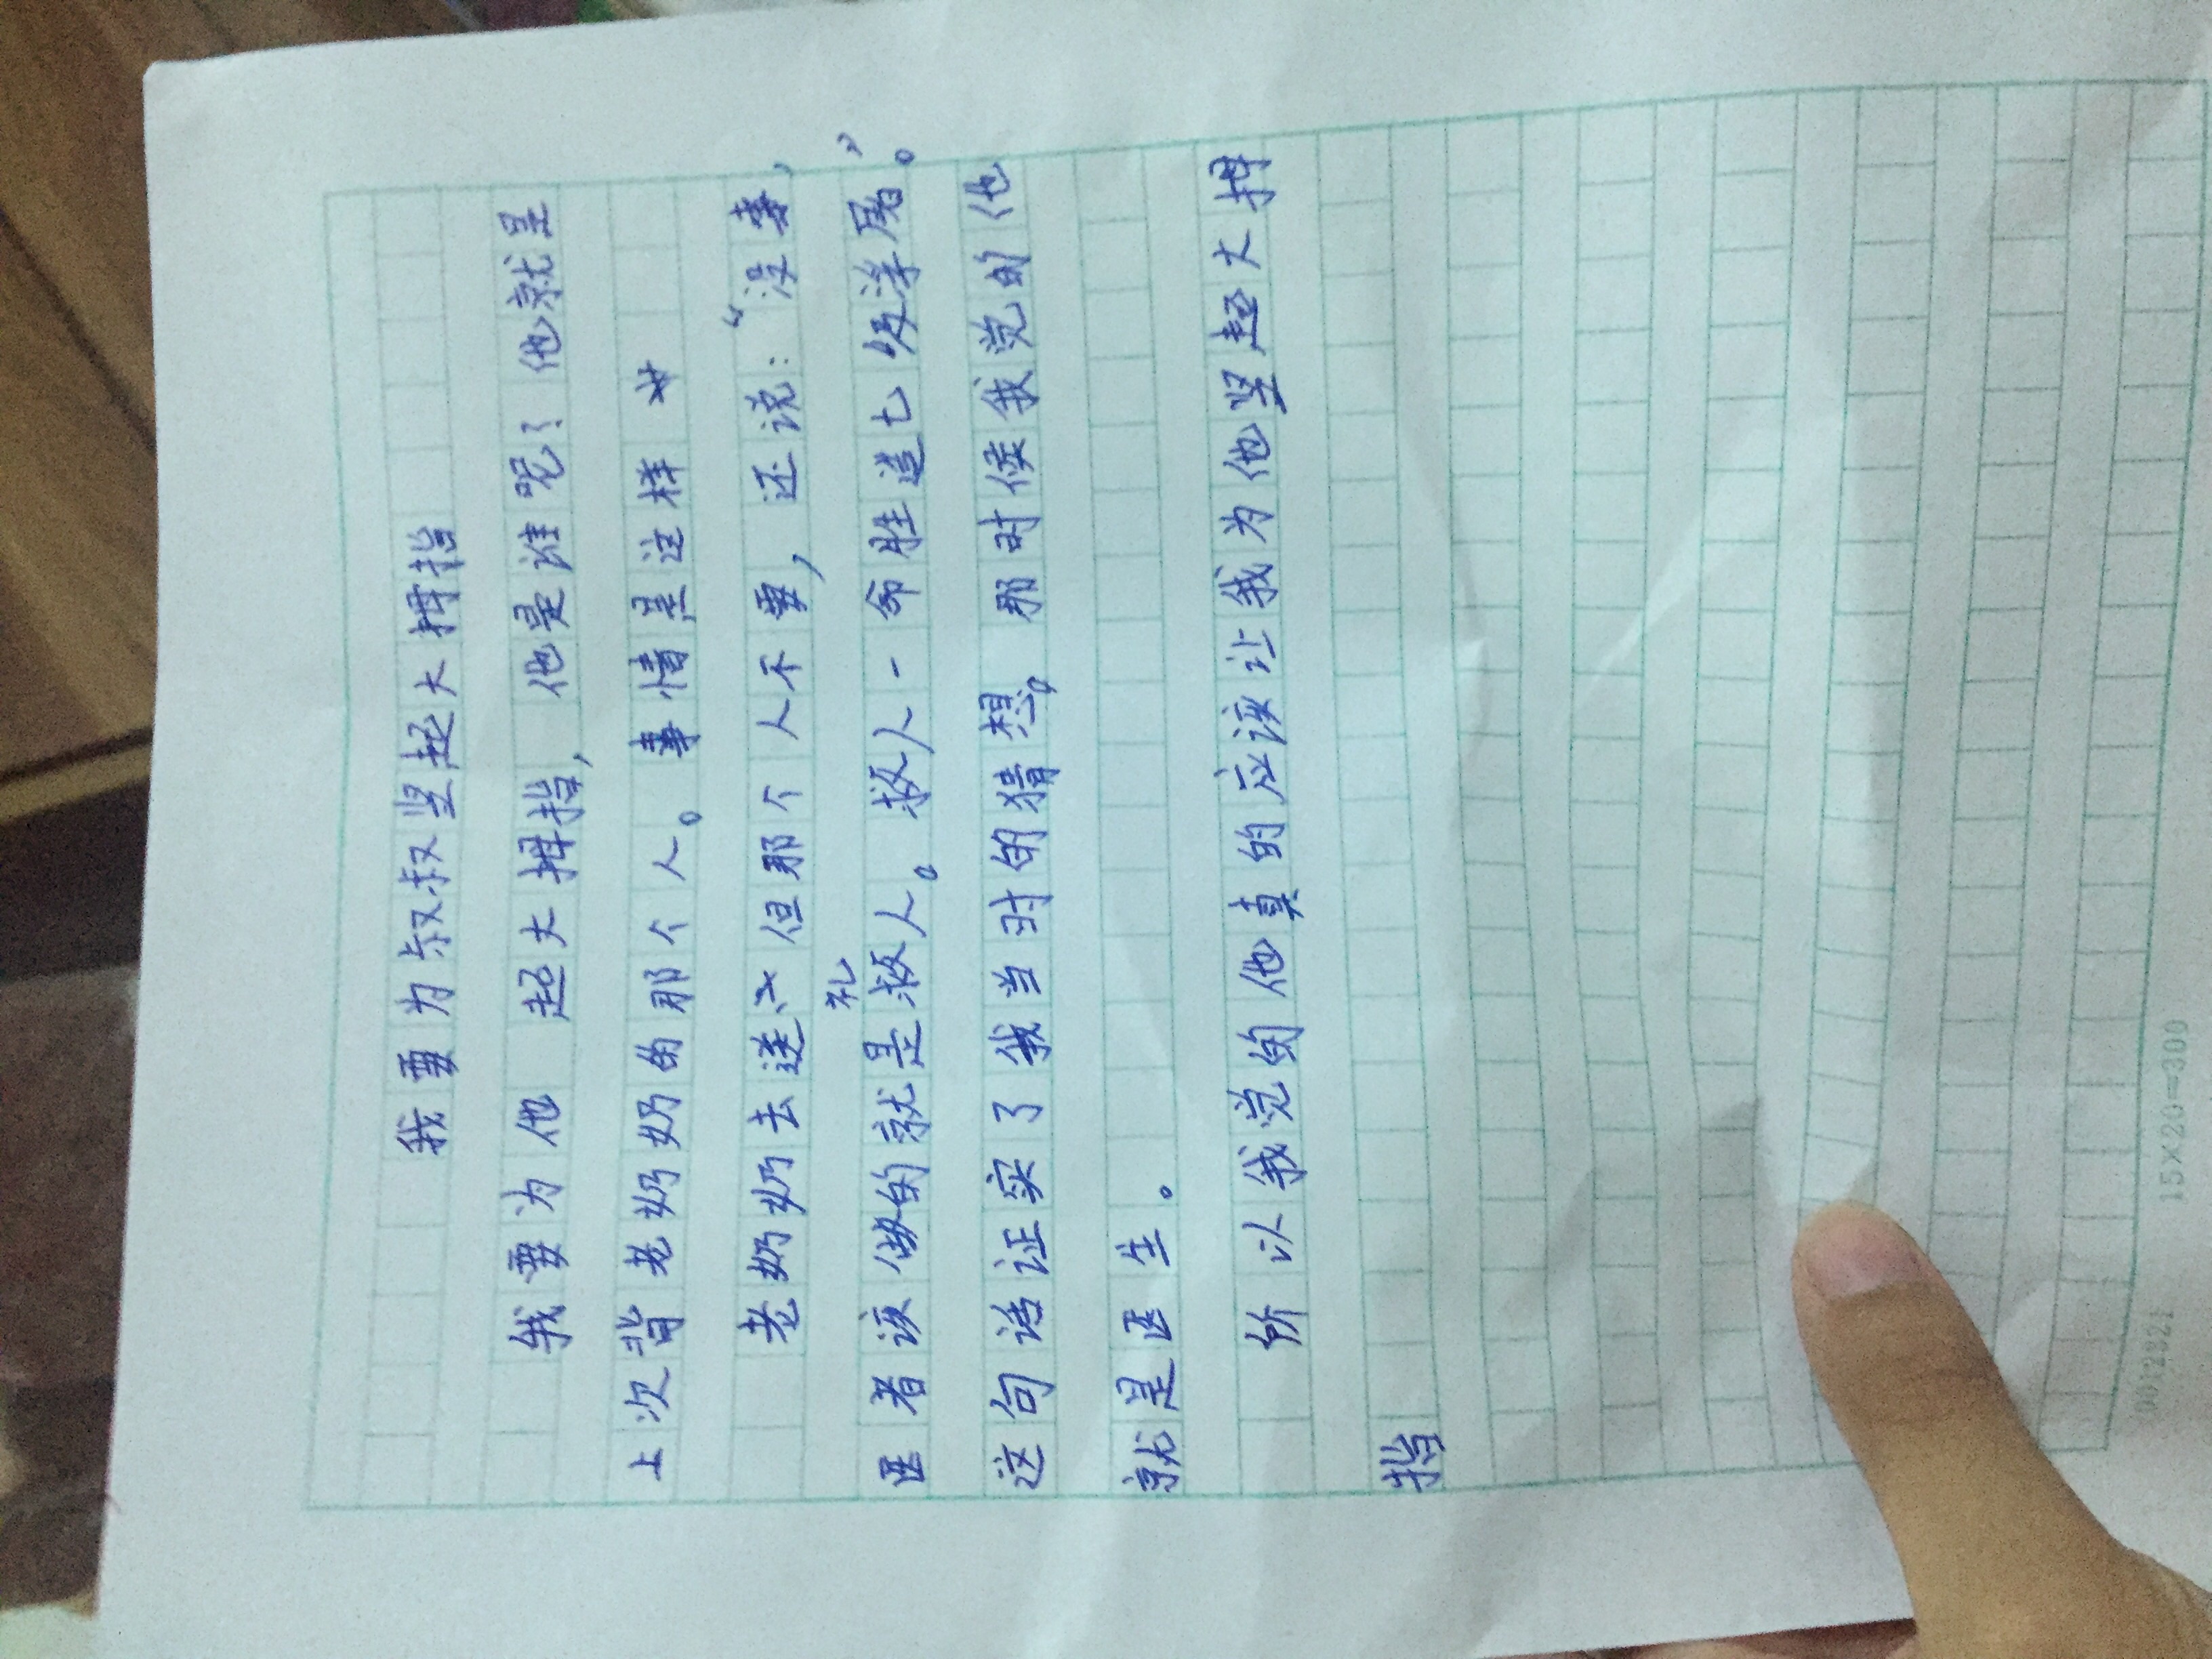 我要为叔叔坚起大拇指
我要为他 起大拇指，他是谁呢？他就是
上次背老奶奶的那个人。事情是这样
老奶奶去送礼但那个人不要，还说：“没事，
医者该做的就是救人。救人一命胜造七级浮屠”。
这句话证实了我当时的猜想，那时候我觉的他
就是医生。
所以我觉的他真的应该让我为他坚起大拇
指
0012821 15×20=300